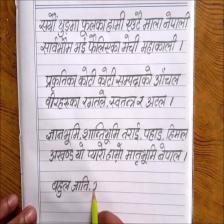 सयौँ थुँगा फूलका हामी एउटै माला नेपाली
सार्वभौम भई फैलिएका मेची महाकाली ।
प्रकृतिका कोटी कोटी सम्पदाको आँचल
वीरहरूका रगतले, स्वतन्त्र र अटल ।
ज्ञानभूमि, शान्तिभूमि तराई, पहाड, हिमाल
अखण्ड यो प्यारो हाम्रो मातृभूमि नेपाल ।
बहुल जाति,